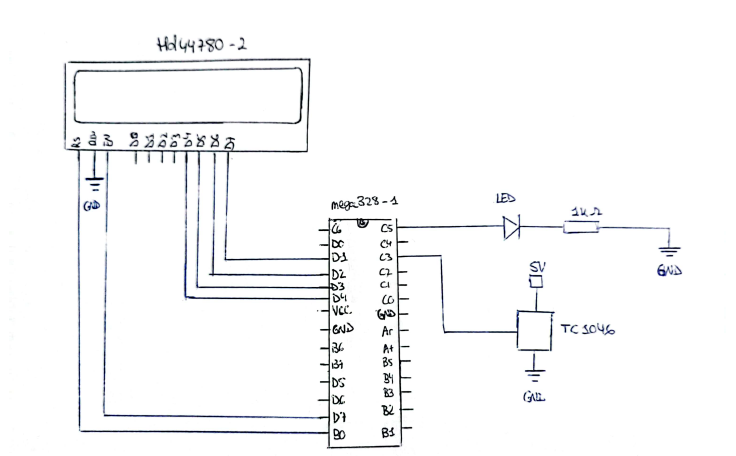 Hd44780-2
RS
E
D0
D1
D2
D3
D4
D5
D6
D7
GND
mega328-1
C6
D0
D1
D2
D3
D4
VCC
GND
B6
B7
D5
D6
D7
B0
C5
C4
C3
C2
C1
C0
GND
Ar
A+
B5
B4
B3
B2
B1
LED
1kΩ
GND
5V
TC1046
GND